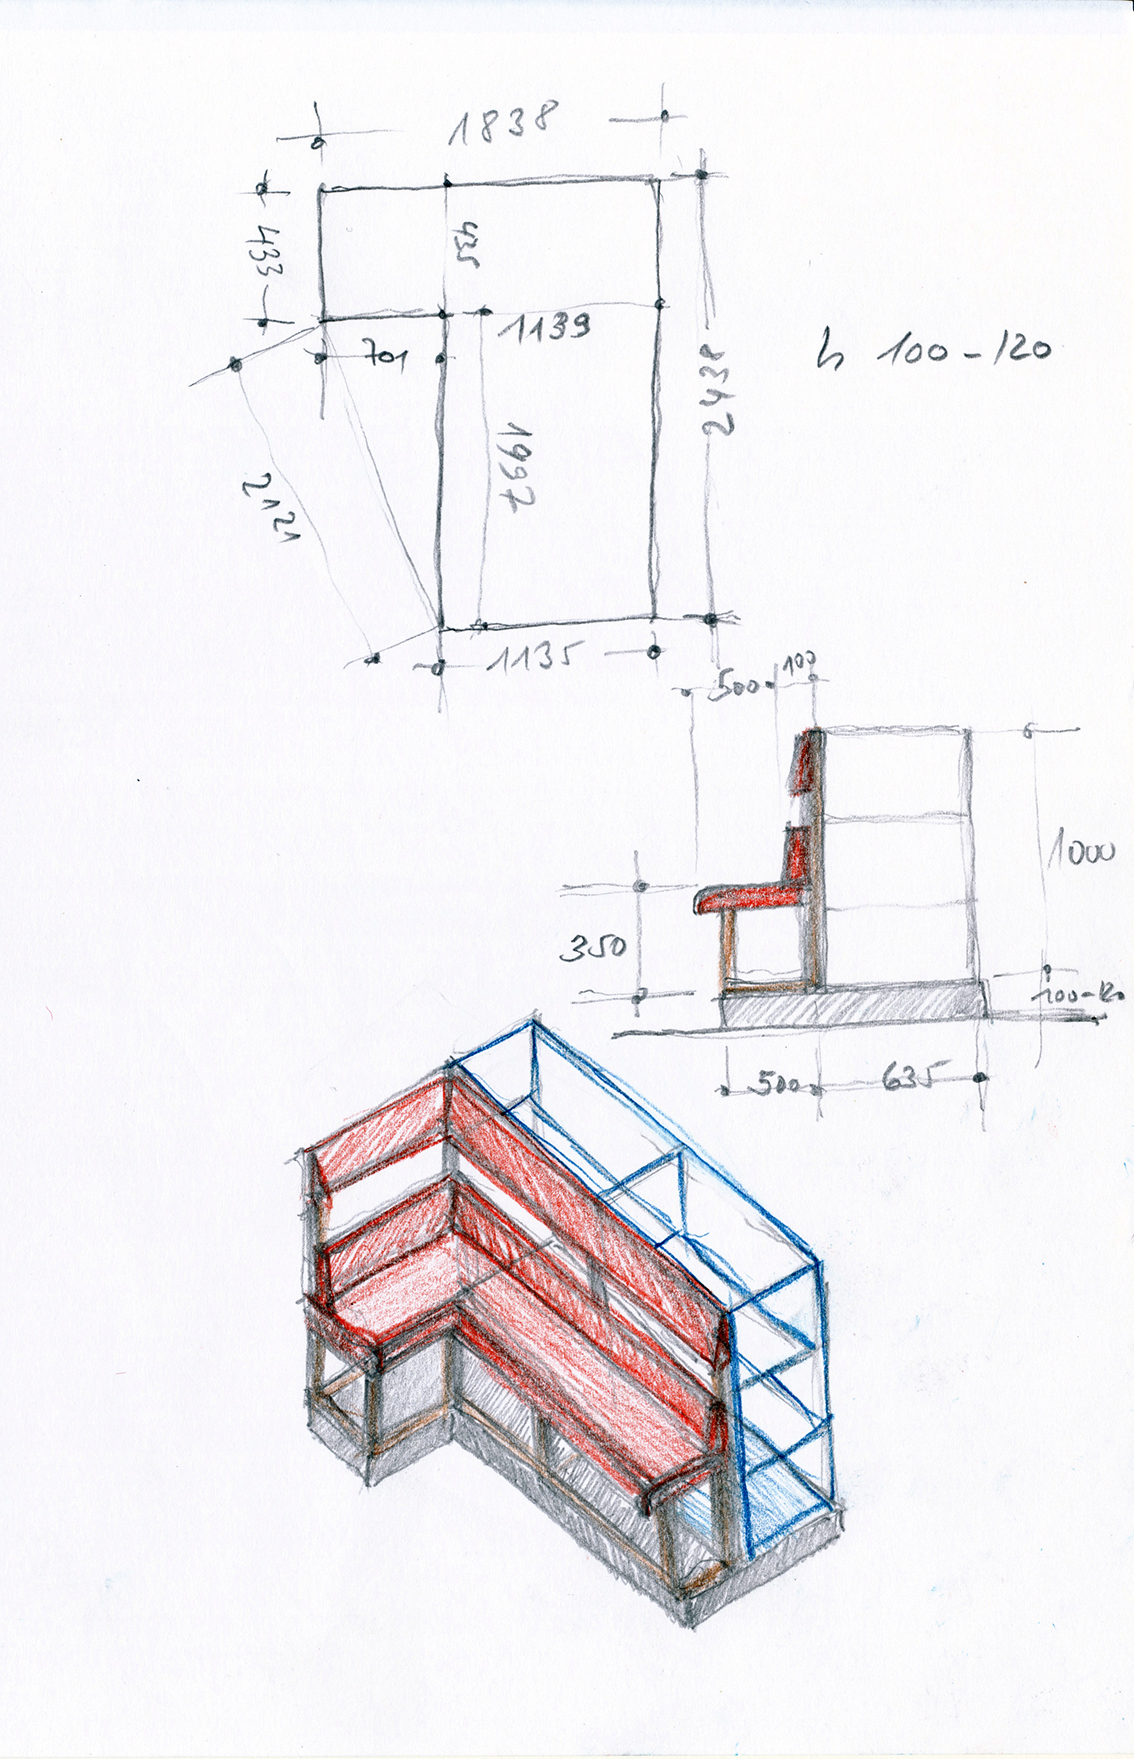 1838
433
435
1139
701
h 100-120
2438
1997
2121
1135
500 100
1000
350
100-120
500 635